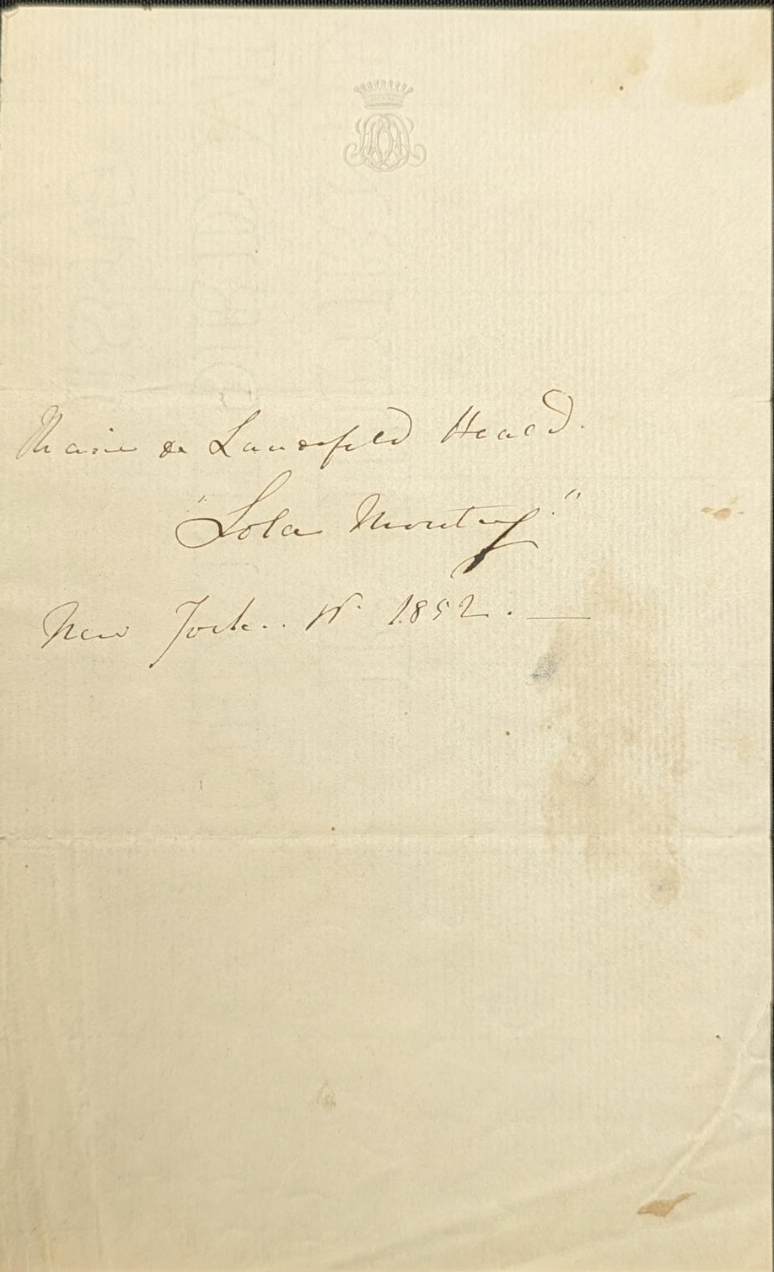 Marie de Landsfeld Heald.
"Lola Montez"
New York. 1852. —